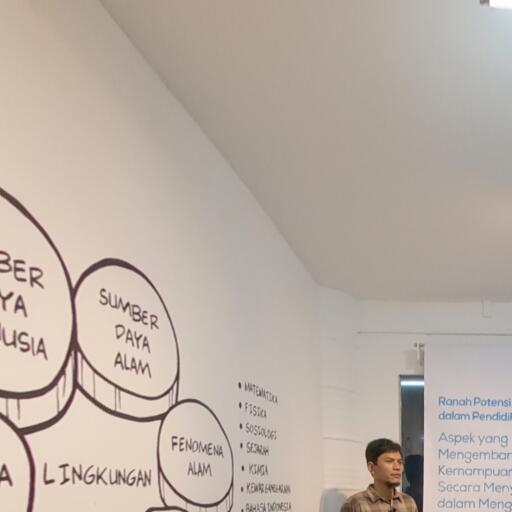 BER
YA
USIA
SUMBER
DAYA
ALAM
FENOMENA
ALAM
A
LINGKUNGAN
• MATEMATIKA
• FISIKA
• SOSIOLOGI
• SEJARAH
• KIMIA
• KEWARGANEGARAAN
• BAHASA INDONESIA
Ranah Potensi
dalam Pendidi
Aspek yang
Mengemban
Kemampuan
Secara Meny
dalam Meng